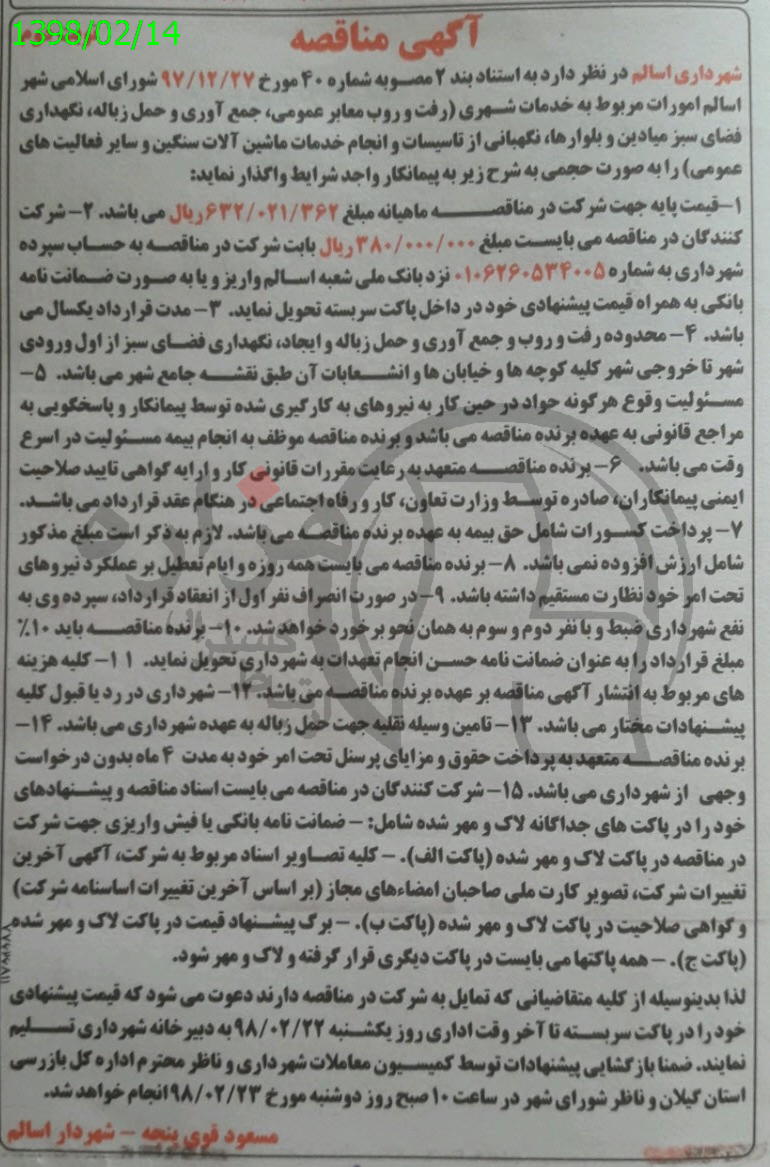 1398/02/14
آگهی مناقصه
شهرداری اسالم در نظر دارد به استناد بند ۲ مصوبه شماره ۴۰ مورخ ۹۷/۱۲/۲۷ شورای اسلامی شهر
اسالم امورات مربوط به خدمات شهری (رفت و روب معابر عمومی، جمع آوری و حمل زباله، نگهداری
فضای سبز میادین و بلوارها، نگهبانی از تاسیسات و انجام خدمات ماشین آلات سنگین و سایر فعالیت های
عمومی) را به صورت حجمی به شرح زیر به پیمانکار واجد شرایط واگذار نماید:
۱-قیمت پایه جهت شرکت در مناقصه ماهیانه مبلغ ۶۳۲/۰۲۱/۳۶۲ ریال می باشد. ۲- شرکت
کنندگان در مناقصه می بایست مبلغ ۳۸۰/۰۰۰/۰۰۰ ریال بابت شرکت در مناقصه به حساب سپرده
شهرداری به شماره ۰۱۰۶۲۶۰۵۳۴۰۰۵ نزد بانک ملی شعبه اسالم واریز و یا به صورت ضمانت نامه
بانکی به همراه قیمت پیشنهادی خود در داخل پاکت سربسته تحویل نماید. ۳- مدت قرارداد یکسال می
باشد. ۴- محدوده رفت و روب و جمع آوری و حمل زباله و ایجاد، نگهداری فضای سبز از اول ورودی
شهر تا خروجی شهر کلیه کوچه ها و خیابان ها و انشعابات آن طبق نقشه جامع شهر می باشد. ۵-
مسئولیت وقوع هرگونه حواد در حین کار به نیروهای به کارگیری شده توسط پیمانکار و پاسخگویی به
مراجع قانونی به عهده برنده مناقصه می باشد و برنده مناقصه موظف به انجام بیمه مسئولیت در اسرع
وقت می باشد. ۶- برنده مناقصه متعهد به رعایت مقررات قانونی کار و ارایه گواهی تایید صلاحیت
ایمنی پیمانکاران، صادره توسط وزارت تعاون، کار و رفاه اجتماعی در هنگام عقد قرارداد می باشد.
۷- پرداخت کسورات شامل حق بیمه به عهده برنده مناقصه می باشد. لازم به ذکر است مبلغ مذکور
شامل ارزش افزوده نمی باشد. ۸- برنده مناقصه می بایست همه روزه و ایام تعطیل بر عملکرد نیروهای
تحت امر خود نظارت مستقیم داشته باشد. ۹- در صورت انصراف نفر اول از انعقاد قرارداد، سپرده وی به
نفع شهرداری ضبط و با نفر دوم و سوم به همان نحو برخورد خواهد شد. ۱۰- برنده مناقصه باید ۱۰٪
مبلغ قرارداد را به عنوان ضمانت نامه حسن انجام تعهدات به شهرداری تحویل نماید. ۱۱- کلیه هزینه
های مربوط به انتشار آگهی مناقصه بر عهده برنده مناقصه می باشد. ۱۲- شهرداری در رد یا قبول کلیه
پیشنهادات مختار می باشد. ۱۳- تامین وسیله نقلیه جهت حمل زباله به عهده شهرداری می باشد. ۱۴-
برنده مناقصه متعهد به پرداخت حقوق و مزایای پرسنل تحت امر خود به مدت ۴ ماه بدون درخواست
وجهی از شهرداری می باشد. ۱۵- شرکت کنندگان در مناقصه می بایست اسناد مناقصه و پیشنهادهای
خود را در پاکت های جداگانه لاک و مهر شده شامل: - ضمانت نامه بانکی یا فیش واریزی جهت شرکت
در مناقصه در پاکت لاک و مهر شده (پاکت الف). - کلیه تصاویر اسناد مربوط به شرکت، آگهی آخرین
تغییرات شرکت، تصویر کارت ملی صاحبان امضاءهای مجاز (بر اساس آخرین تغییرات اساسنامه شرکت)
و گواهی صلاحیت در پاکت لاک و مهر شده (پاکت ب). - برگ پیشنهاد قیمت در پاکت لاک و مهر شده
(پاکت ج). - همه پاکتها می بایست در پاکت دیگری قرار گرفته و لاک و مهر شود.
لذا بدینوسیله از کلیه متقاضیانی که تمایل به شرکت در مناقصه دارند دعوت می شود که قیمت پیشنهادی
خود را در پاکت سربسته تا آخر وقت اداری روز یکشنبه ۹۸/۰۲/۲۲ به دبیرخانه شهرداری تسلیم
نمایند. ضمنا بازگشایی پیشنهادات توسط کمیسیون معاملات شهرداری و ناظر محترم اداره کل بازرسی
استان گیلان و ناظر شورای شهر در ساعت ۱۰ صبح روز دوشنبه مورخ ۹۸/۰۲/۲۳ انجام خواهد شد.
مسعود قوی پنجه - شهردار اسالم